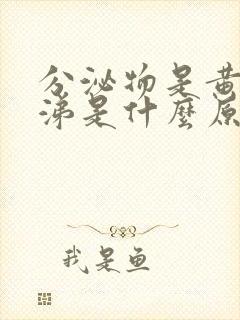 分泌物是黄
涕是什麼原
我是鱼